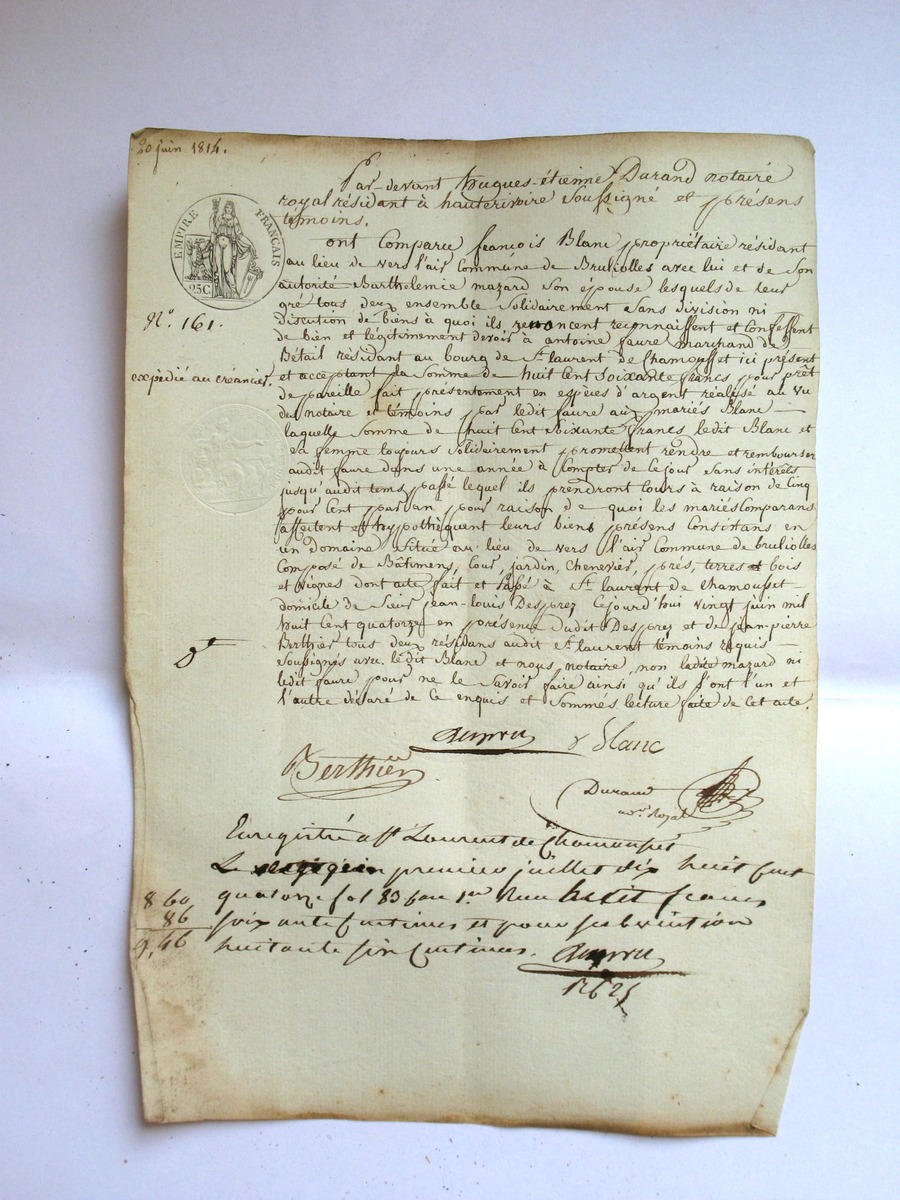 20 juin 1814.
Par-devant hugues-étienne Durand notaire
royal résidant à hauterivoire Soussigné et présens
témoins.
EMPIRE FRANÇAIS
25C
ont Comparu françois Blanc propriétaire résidant
au lieu de vers l'air Commune de Brullolles avec lui et de Son
autorité Barthelemie mazard Son épouse lesquels de leur
gré tous deux ensemble Solidairement Sans division ni
discution de biens à quoi ils renoncent reconnaissent et Confessent
N.º 161.
de bien et légitimement devoir à antoine faure marchand de
Bétail résidant au bourg de St laurent de Chamousset ici présent
expédié au créancier.
et acceptant la Somme de huit Cent Soixante francs pour prêt
de pareille fait présentement en espèces d'argent réalisé au vu
du notaire et témoins par ledit faure aux mariés Blanc
laquelle Somme de huit Cent Soixante francs ledit Blanc et
Sa femme toujours Solidairement promettent rendre et rembourser
audit faure dans une année à Compter de Ce jour Sans intérêts
jusqu'audit tems passé lequel ils prendront Cours à raison de Cinq
pour Cent par an pour raison de quoi les mariés Comparans
affectent et hypothèquent leurs biens présens Consistans en
un domaine Situé au lieu de vers l'air Commune de brullolles
Composé de Bâtimens, Cour, jardin, Chenevier, prés, terres et bois
et vignes dont acte fait et passé à St laurent de Chamousset
domicile de Sieur jean-louis Desprez Cejourd'hui vingt juin mil
huit Cent quatorze en présence dudit Desprez et de jean-pierre
Berthier tous deux résidans audit St laurent témoins requis
Soussignés avec ledit Blanc et nous notaire, non ladite mazard ni
ledit faure pour ne le Savoir faire ainsi qu'ils l'ont l'un et
l'autre déclaré de Ce enquis et Sommés lecture faite de Cet acte.
Blanc
Berthier
Durand
no.re Royal
Enregistré à St Laurent de Chamousset
Le premier juillet dix huit Cent
quatorze fol 83 1er Reçu huit francs
860
soixante Centimes et pour subvention
86
huitante six Centimes.
9,46